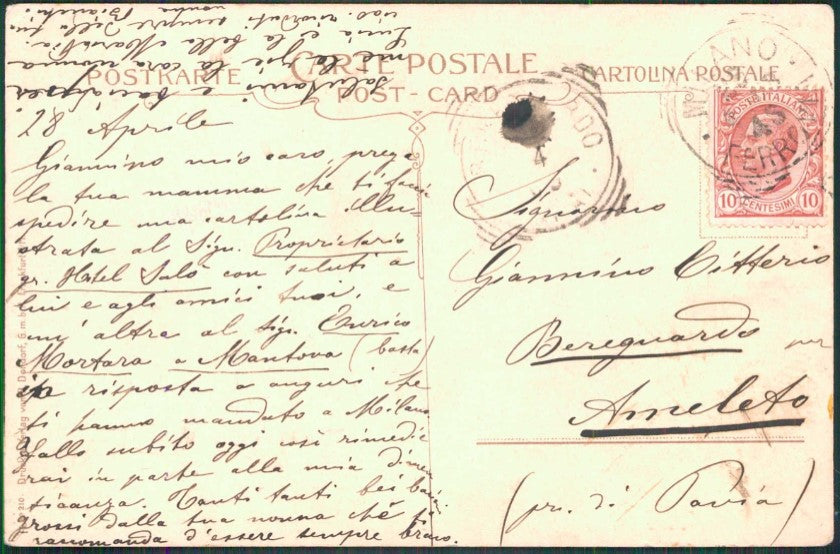 POSTKARTE
CARTE POSTALE
CARTOLINA POSTALE
POST-CARD
28 Aprile
Giannino mio caro, prega
la tua mamma che ti faccia
spedire una cartolina illu-
strata al Sign. Proprietario
gr. Hotel Salò con saluti a
lui e agli amici tuoi, e
un'altra al Sig. Enrico
Mortara a Mantova (basta)
in risposta a auguri che
ti hanno mandato a Milano
Fallo subito oggi così rimedie
rai in parte alla mia dimen
ticanza. Tanti tanti bei baci
grossi dalla tua nonna che ti
raccomanda d'essere sempre bravo.
Salutami e baciami
la cara mamma
Lucia e la bella Maria
sempre della tua
nonna Bianchi
POSTE ITALIANE
10 CENTESIMI 10
MILANO
FERR
4
Signorino
Giannino Citterio
Bereguardo per
Ameleto
(pr. di Pavia)